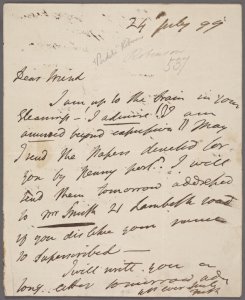 24 July 99
587
Dear Friend
I am up to the Brain in your
Gleanings - I admire! I am
amused beyond expression! May
I send the Papers directed for
you by Penny post. I will
send them tomorrow addressed
to Mr Smith 21 Lambeth road
if you dislike your name
so superscribed -
I will write you a
long letter tomorrow